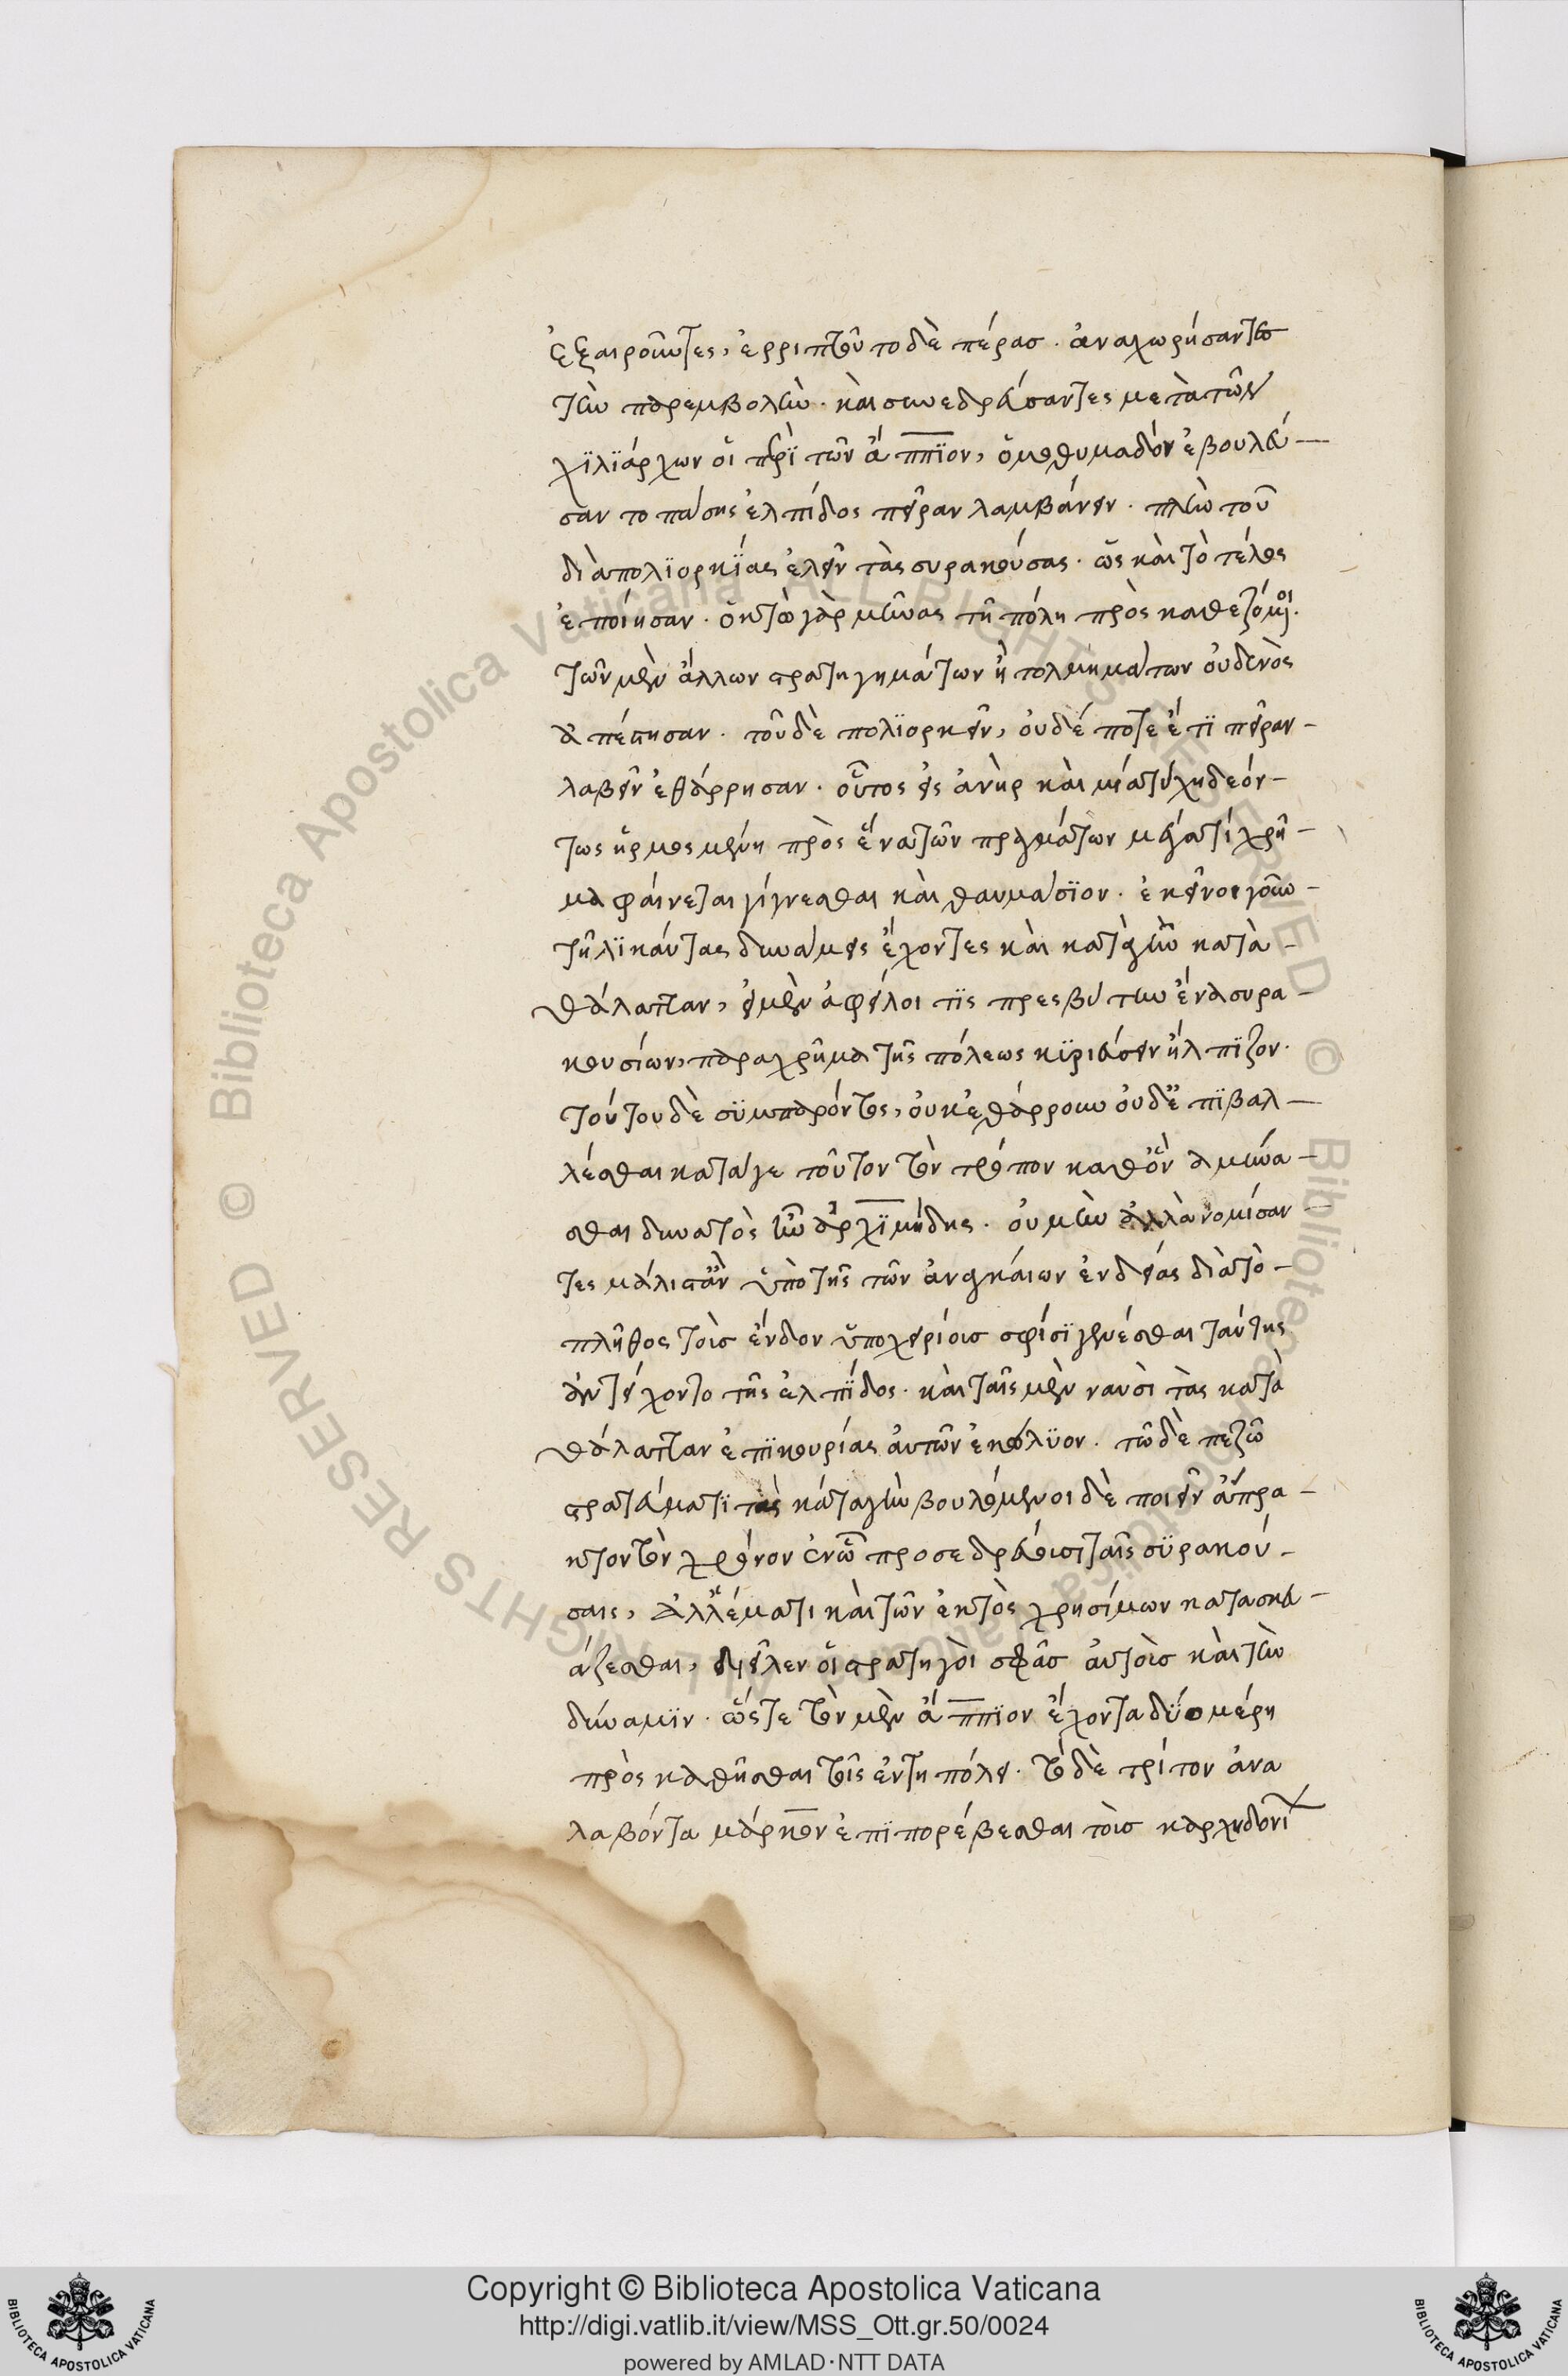 ἐξαιροῦντες, ἐρριπτοῦντο δὲ πέρασ. ἀναχωρήσαντες
τὴν παρεμβολὴν. καὶ συνεδρεύσαντες μετὰ τῶν
χϊλϊάρχων οἱ περὶ τῶν ἄππϊον, ὁμοθυμαδόν ἐβουλεύ-
σαν το πάσης ἐλπίδος πεῖραν λαμβάνειν. πλὴν τοῦ
διὰ πολϊορκΐας ἑλεῖν τὰς συρακούσας. ὣς καὶ τὸ τέλος
ἐποίησαν. ὀκτὼ γὰρ μῆνας τῆ πόλη πρὸς καθεζόμενοι.
τῶν μὲν ἄλλων στρατηγημάτων ἢ τολμημάτων οὐδενὸς
ἀπέστησαν. τοῦ δὲ πολϊορκεῖν, οὐδέ ποτε ἔτϊ πεῖραν-
λαβεῖν ἐθάρρησαν. οὕτος εἷς ἀνὴρ καὶ μία τύχη δεόν-
τως ἡρμοσμένη πρὸς ἔνα τῶν πραγμάτων μέγα τί χρῆ-
μα φάινεται γίγνεσθαι καὶ θαυμάσϊον. ἐκεῖνοι γοῦν-
τηλϊκάυτας δυνάμεις ἔχοντες καὶ κατὰ γῆν κατὰ-
θάλατταν, εἰ μὲν ἀφείλοι τϊς πρεσβύτην ἕνα συρα-
κουσίων, παραχρῆμα τῆς πόλεως κϋριεύσειν ἤλπϊζον.
τούτου δὲ σϋμπαρόντος, οὐκ ἐθάρρουν οὐδ᾽ ἐπϊβαλ-
λέσθαι κατάγε τοῦτον τὸν τρόπον καθ᾽ ὃν ἀμύνα-
σθαι δυνατὸς ἦν ἀρχϊμήδης. οὐ μὴν ἀλλὰ νομίσαν
τες μάλιστ᾽ ἂν ὑπὸ τῆς τῶν ἀναγκάιων ἐνδείας διὰ τὸ-
πλῆθος τοῖσ ἔνδον ὑποχειρίοισ σφίσϊ γενέσθαι ταύτης
ἀντείχοντο τῆς ἐλπΐδος. καὶ ταῖς μὲν ναυσὶ τὰς κατὰ
θάλατταν ἐπϊκουρίας ἀυτῶν ἐκώλϋον. τῶ δὲ πεζῶ
στρατεύματϊ τὰς κάτα γῆν βουλόμενοι δὲ ποιεῖν ἄπρα-
κτον τὸν χρόνον ἐν ὧ προσεδρεύουσι ταῖς σϋρακού-
σαις, ἀλλ᾽ ἅματι καὶ τῶν ἐκτὸς χρησίμων κατασκευ-
άζεσθαι, διεῖλεν οἱ στρατηγὸι σφᾶσ ἀυτοὺσ καὶ τὴν
δύναμϊν. ὥστε τὸν μὲν ἄππϊον ἔχοντα δύο μέρη
πρὸς καθῆσθαι τοῖς ἐν τη πόλει. τὸ δὲ τρίτον ἀνα
λαβόντα μάρκον ἐπϊπορέβεσθαι τοὶσ καρχηδονΐ
Copyright © Biblioteca Apostolica Vaticana
http://digi.vatlib.it/view/MSS_Ott.gr.50/0024
powered by AMLAD·NTT DATA